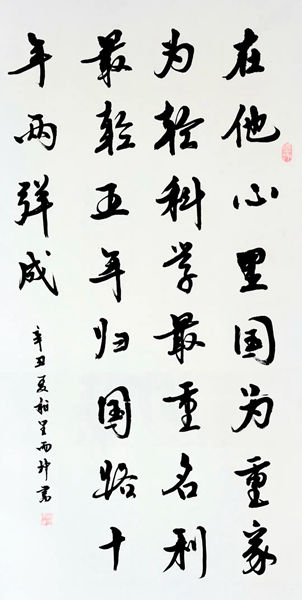 在他心里国为重家
为轻科学最重名利
最轻五年归国路十
年两弹成
辛丑夏柏雨书